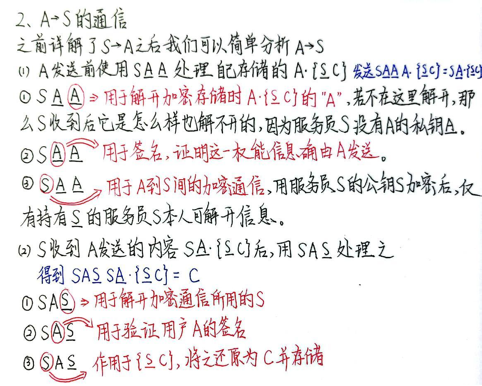 2、A→S的通信
之前详解了S→A之后我们可以简单分析A→S
(1) A发送前使用SA̲A̲处理自己存储的A·{S̲C} 发送SA̲A̲A·{S̲C}=SA̲·{S̲C}
① SA̲A̲ ⇒ 用于解开加密存储时A·{S̲C}的“A”,若不在这里解开,那
么S收到后它是怎么样也解不开的,因为服务员S没有A的私钥A̲。
② SA̲A̲ 用于签名,证明这一权能信息确由A发送。
③ SA̲A̲ 用于A到S间的加密通信,用服务员S的公钥S加密后,仅
有持有S̲的服务员S本人可解开信息。
(2) S收到A发送的内容SA̲·{S̲C}后,用SAS̲处理之
得到SAS̲SA̲·{S̲C}=C
① SAS̲ ⇒ 用于解开加密通信所用的S
② SAS̲ 用于验证用户A的签名
③ SAS̲ 作用于{S̲C},将之还原为C并存储